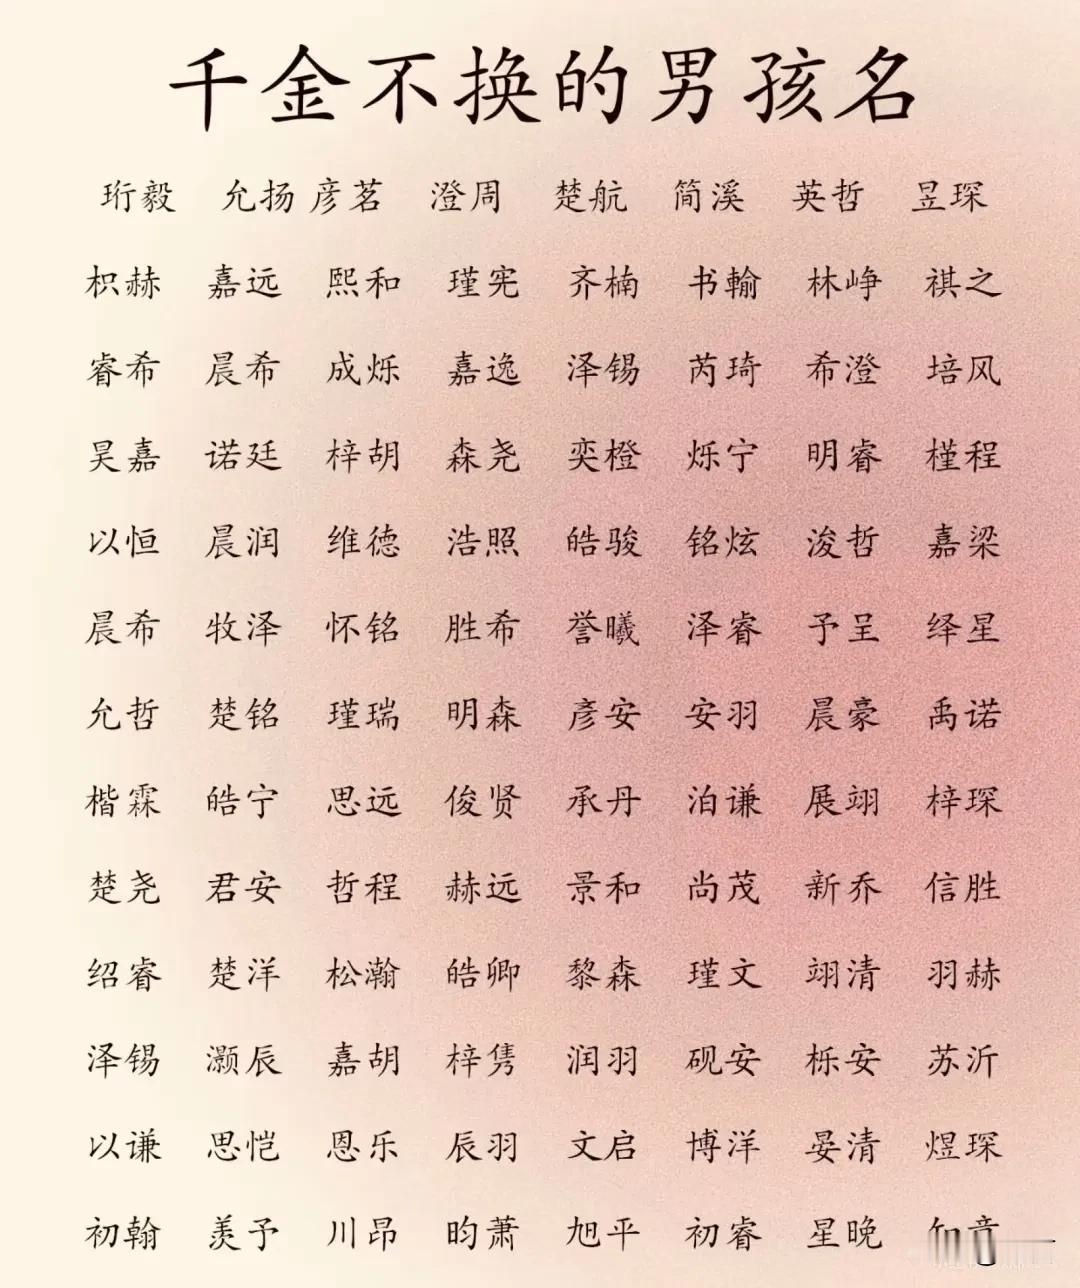 千金不换的男孩名
珩毅 允扬 彦茗 澄周 楚航 简溪 英哲 昱琛
枳赫 嘉远 熙和 瑾宪 齐楠 书輸 林峥 祺之
睿希 晨希 成烁 嘉逸 泽锡 芮琦 希澄 培风
昊嘉 诺廷 梓胡 森尧 奕橙 烁宁 明睿 槿程
以恒 晨润 维德 浩照 皓骏 铭炫 浚哲 嘉梁
晨希 牧泽 怀铭 胜希 誉曦 泽睿 予呈 绎星
允哲 楚铭 瑾瑞 明森 彦安 安羽 晨豪 禹诺
楷霖 皓宁 思远 俊贤 承丹 泊谦 展翊 梓琛
楚尧 君安 哲程 赫远 景和 尚茂 新乔 信胜
绍睿 楚洋 松瀚 皓卿 黎森 瑾文 翊清 羽赫
泽锡 灏辰 嘉胡 梓隽 润羽 砚安 栎安 苏沂
以谦 思恺 恩乐 辰羽 文启 博洋 晏清 煜琛
初翰 羡予 川昂 昀萧 旭平 初睿 星晚